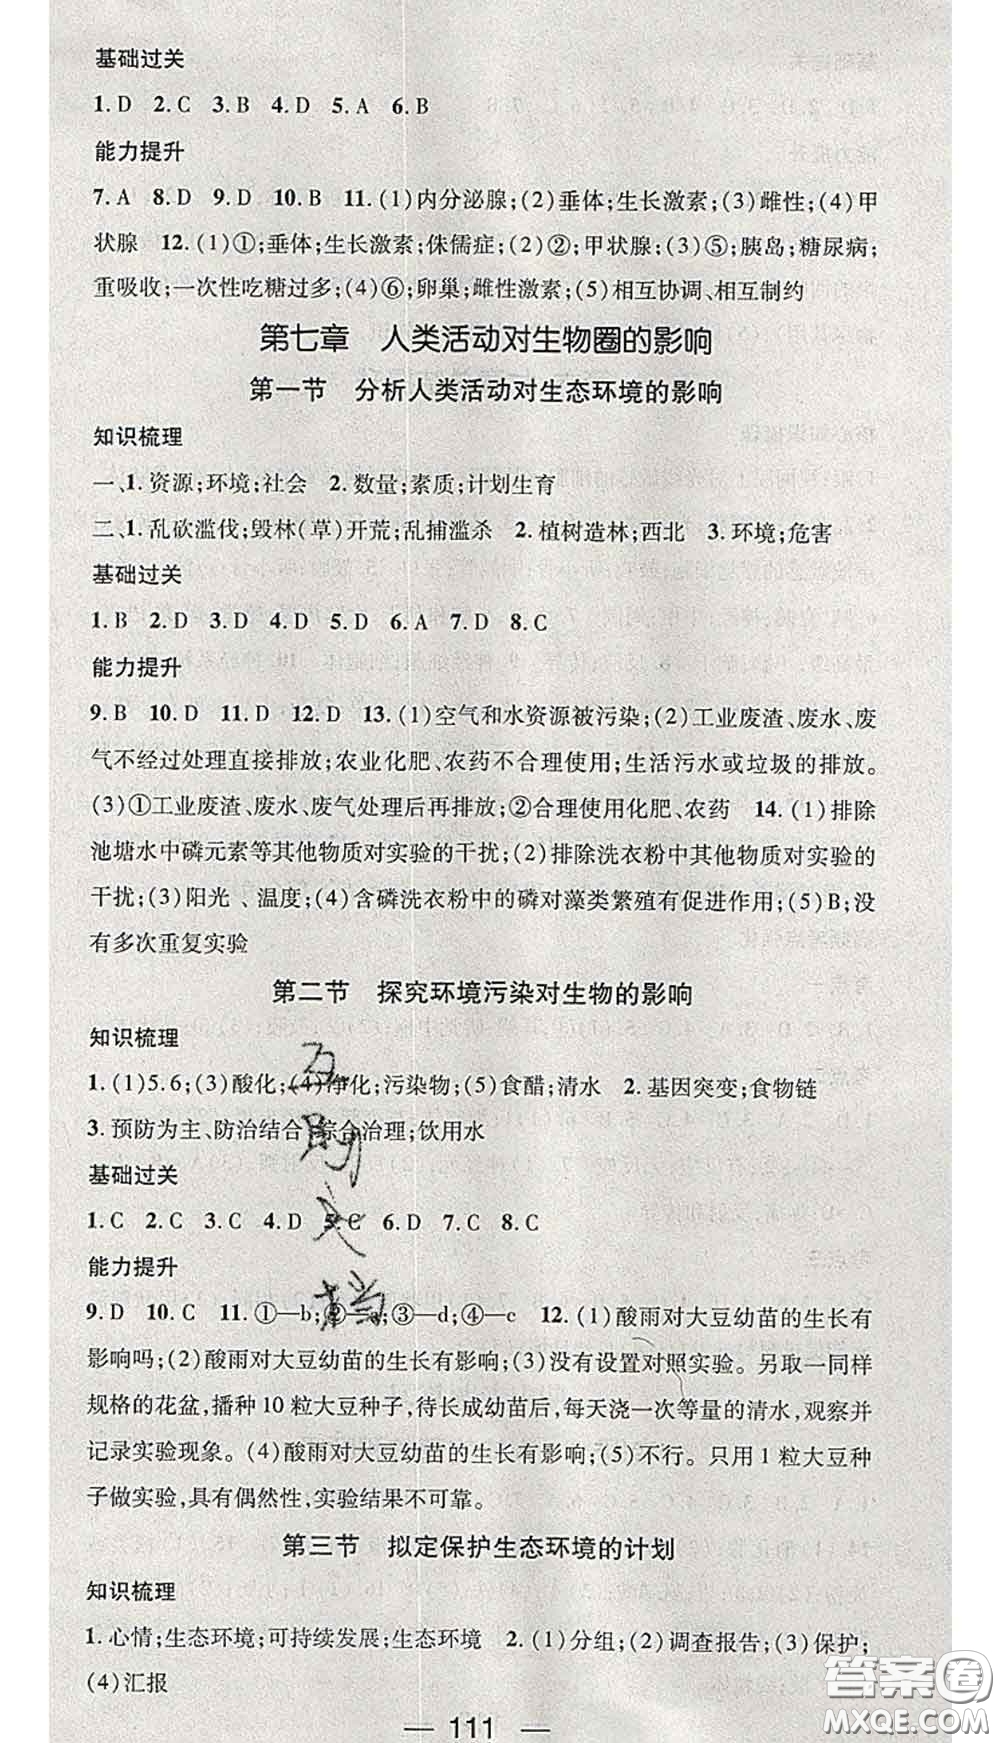 基础过关
1.D 2.C 3.B 4.D 5.A 6.B
能力提升
7.A 8.D 9.D 10.B 11.(1)内分泌腺;(2)垂体;生长激素;(3)雌性;(4)甲
状腺 12.(1)①;垂体;生长激素;侏儒症;(2)②;甲状腺;(3)⑤;胰岛;糖尿病;
重吸收;一次性吃糖过多;(4)⑥;卵巢;雌性激素;(5)相互协调、相互制约
第七章 人类活动对生物圈的影响
第一节 分析人类活动对生态环境的影响
知识梳理
一、1.资源;环境;社会 2.数量;素质;计划生育
二、1.乱砍滥伐;毁林(草)开荒;乱捕滥杀 2.植树造林;西北 3.环境;危害
基础过关
1.B 2.D 3.D 4.D 5.D 6.A 7.D 8.C
能力提升
9.B 10.D 11.D 12.D 13.(1)空气和水资源被污染;(2)工业废渣、废水、废
气不经过处理直接排放;农业化肥、农药不合理使用;生活污水或垃圾的排放。
(3)①工业废渣、废水、废气处理后再排放;②合理使用化肥、农药 14.(1)排除
池塘水中磷元素等其他物质对实验的干扰;(2)排除洗衣粉中其他物质对实验的
干扰;(3)阳光、温度;(4)含磷洗衣粉中的磷对藻类繁殖有促进作用;(5)B;没
有多次重复实验
第二节 探究环境污染对生物的影响
知识梳理
1.(1)5.6;(3)酸化;(4)净化;污染物;(5)食醋;清水 2.基因突变;食物链
3.预防为主、防治结合、综合治理;饮用水
基础过关
1.C 2.C 3.C 4.D 5.C 6.D 7.C 8.C
能力提升
9.D 10.C 11.①—b;②—a;③—d;④—c 12.(1)酸雨对大豆幼苗的生长有
影响吗;(2)酸雨对大豆幼苗的生长有影响;(3)没有设置对照实验。另取一同样
规格的花盆,播种10粒大豆种子,待长成幼苗后,每天浇一次等量的清水,观察并
记录实验现象。(4)酸雨对大豆幼苗的生长有影响;(5)不行。只用1粒大豆种
子做实验,具有偶然性,实验结果不可靠。
第三节 拟定保护生态环境的计划
知识梳理
1.心情;生态环境;可持续发展;生态环境 2.(1)分组;(2)调查报告;(3)保护;
(4)汇报
— 111 —
答案圈
MXQE.COM